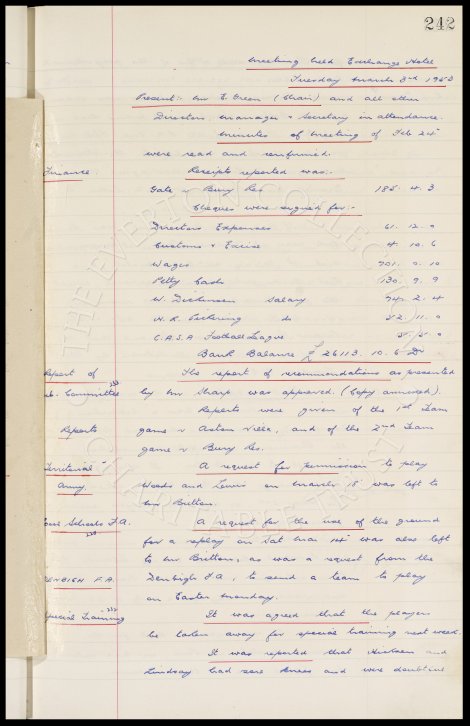 242
Meeting held Exchange Hotel
Tuesday March 3rd 1953
Present:- Mr E. Green (Chair) and all other
Directors. Manager & Secretary in attendance.
Minutes of Meeting of Feb 24th
were read and confirmed.
Finance. Receipts reported was:-
Gate v Bury Res 185. 4. 3
Cheques were signed for:-
Directors Expenses 61. 12. 0
Customs & Excise 4. 10. 6
Wages 701. 0. 10
Petty Cash 130. 9. 9
W. Dickinson Salary 74. 2. 4
H. R. Pickering do 52. 11. 0
C.A.S.A. Football League 5. 5. 0
Bank Balance £26113. 10. 6 Dr
Report of The report of recommendations as presented
Sub. Committee by Mr Sharp was approved. (Copy annexed).
Reports were given of the 1st Team
Reports game v Aston Villa, and of the 2nd Team
game v Bury Res.
Territorial A request for permission to play
Army. Woods and Lewis on March 18 was left to
Mr Britton.
Schools F.A. A request for the use of the ground
for a replay on Sat Mar 14th was also left
to Mr Britton, as was a request from the
DENBIGH F.A. Denbigh F.A. to send a team to play
on Easter Monday.
Special Training It was agreed that the players
be taken away for special training next week.
It was reported that Hickson and
Lindsay had sore knees and were doubtful
THE EVERTON COLLECTION
CHARITABLE TRUST